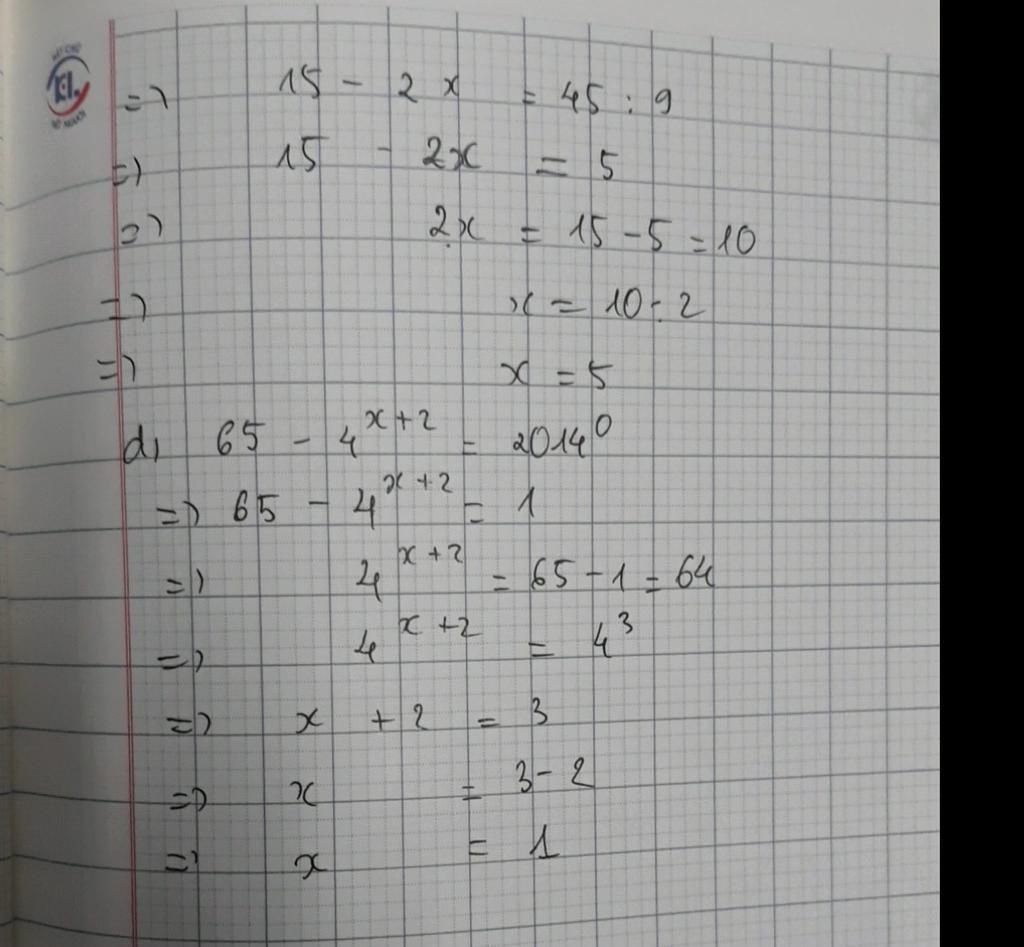 => 15 - 2x = 45 : 9
=> 15 - 2x = 5
=> 2x = 15 - 5 = 10
=> x = 10 : 2
=> x = 5
d, 65 - 4^{x+2} = 2014^0
=> 65 - 4^{x+2} = 1
=> 4^{x+2} = 65 - 1 = 64
=> 4^{x+2} = 4^3
=> x + 2 = 3
=> x = 3 - 2
=> x = 1